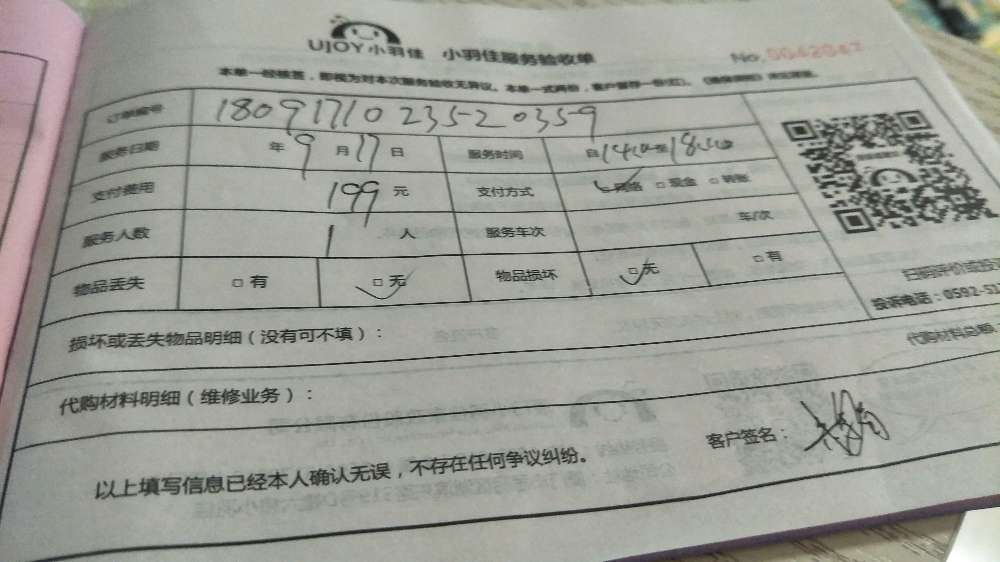 UJOY小羽佳 小羽佳服务验收单 No. 0042047
本单一经核签，即视为对本次服务验收无异议。本单一式两份，客户留存一份
订单编号 1809171023520359
服务日期 年 9 月 17 日 服务时间 自 14:00 至 18:00
支付费用 199 元 支付方式 网络 □现金 □转账
服务人数 1 人 服务车次 车/次
物品丢失 □有 □无 物品损坏 □无 □有
扫码评价或投
投诉电话：0592-51
损坏或丢失物品明细（没有可不填）：
代购材料总额
代购材料明细（维修业务）：
客户签名：
以上填写信息已经本人确认无误，不存在任何争议纠纷。